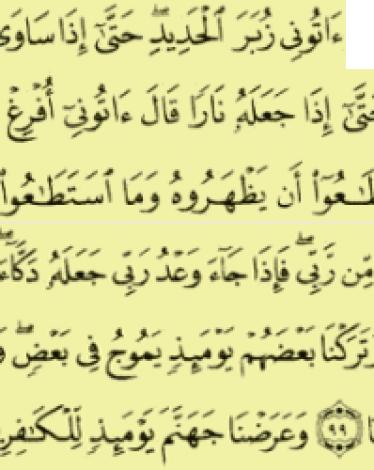 ءَاتُونِى زُبَرَ ٱلْحَدِيدِ ۖ حَتَّىٰٓ إِذَا سَاوَىٰ
حَتَّىٰٓ إِذَا جَعَلَهُۥ نَارًا قَالَ ءَاتُونِىٓ أُفْرِغْ
طَـٰعُوٓا۟ أَن يَظْهَرُوهُ وَمَا ٱسْتَطَـٰعُوا۟
مِّن رَّبِّى ۖ فَإِذَا جَآءَ وَعْدُ رَبِّى جَعَلَهُۥ دَكَّآءَ ۖ
وَتَرَكْنَا بَعْضَهُمْ يَوْمَئِذٍ يَمُوجُ فِى بَعْضٍ ۖ وَ
ا ٩٩ وَعَرَضْنَا جَهَنَّمَ يَوْمَئِذٍ لِّلْكَـٰفِرِ